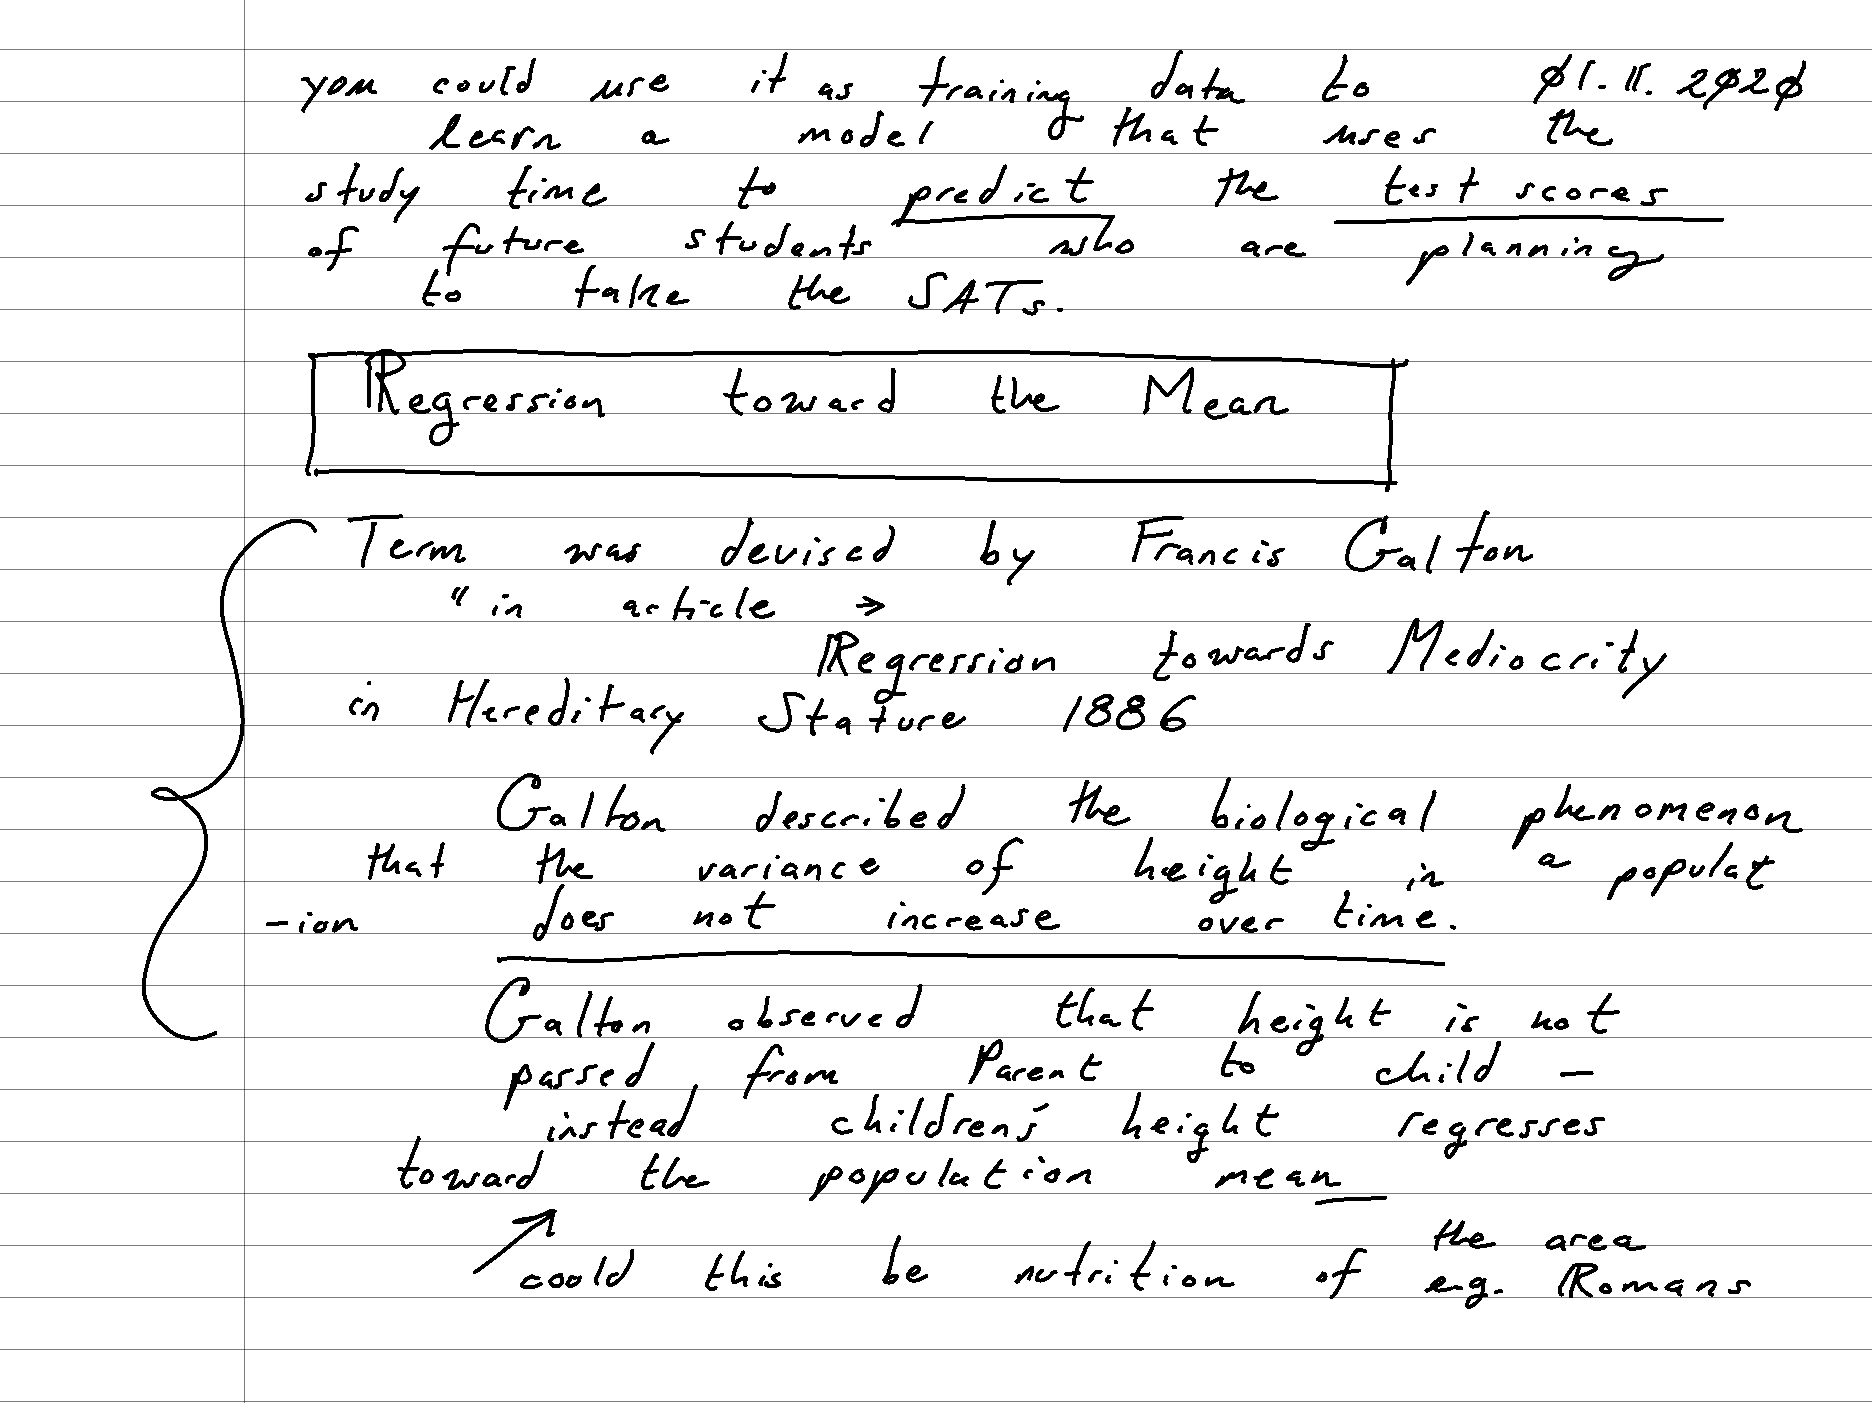 you could use it as training data to 01.11.2020
learn a model that uses the
study time to predict the test scores
of future students who are planning
to take the SATs.
Regression toward the Mean
Term was devised by Francis Galton
" in article →
Regression towards Mediocrity
in Hereditary Stature 1886
Galton described the biological phenomenon
that the variance of height in a populat
-ion does not increase over time.
Galton observed that height is not
passed from Parent to child -
instead children's height regresses
toward the population mean
the area
could this be nutrition of e.g. Romans